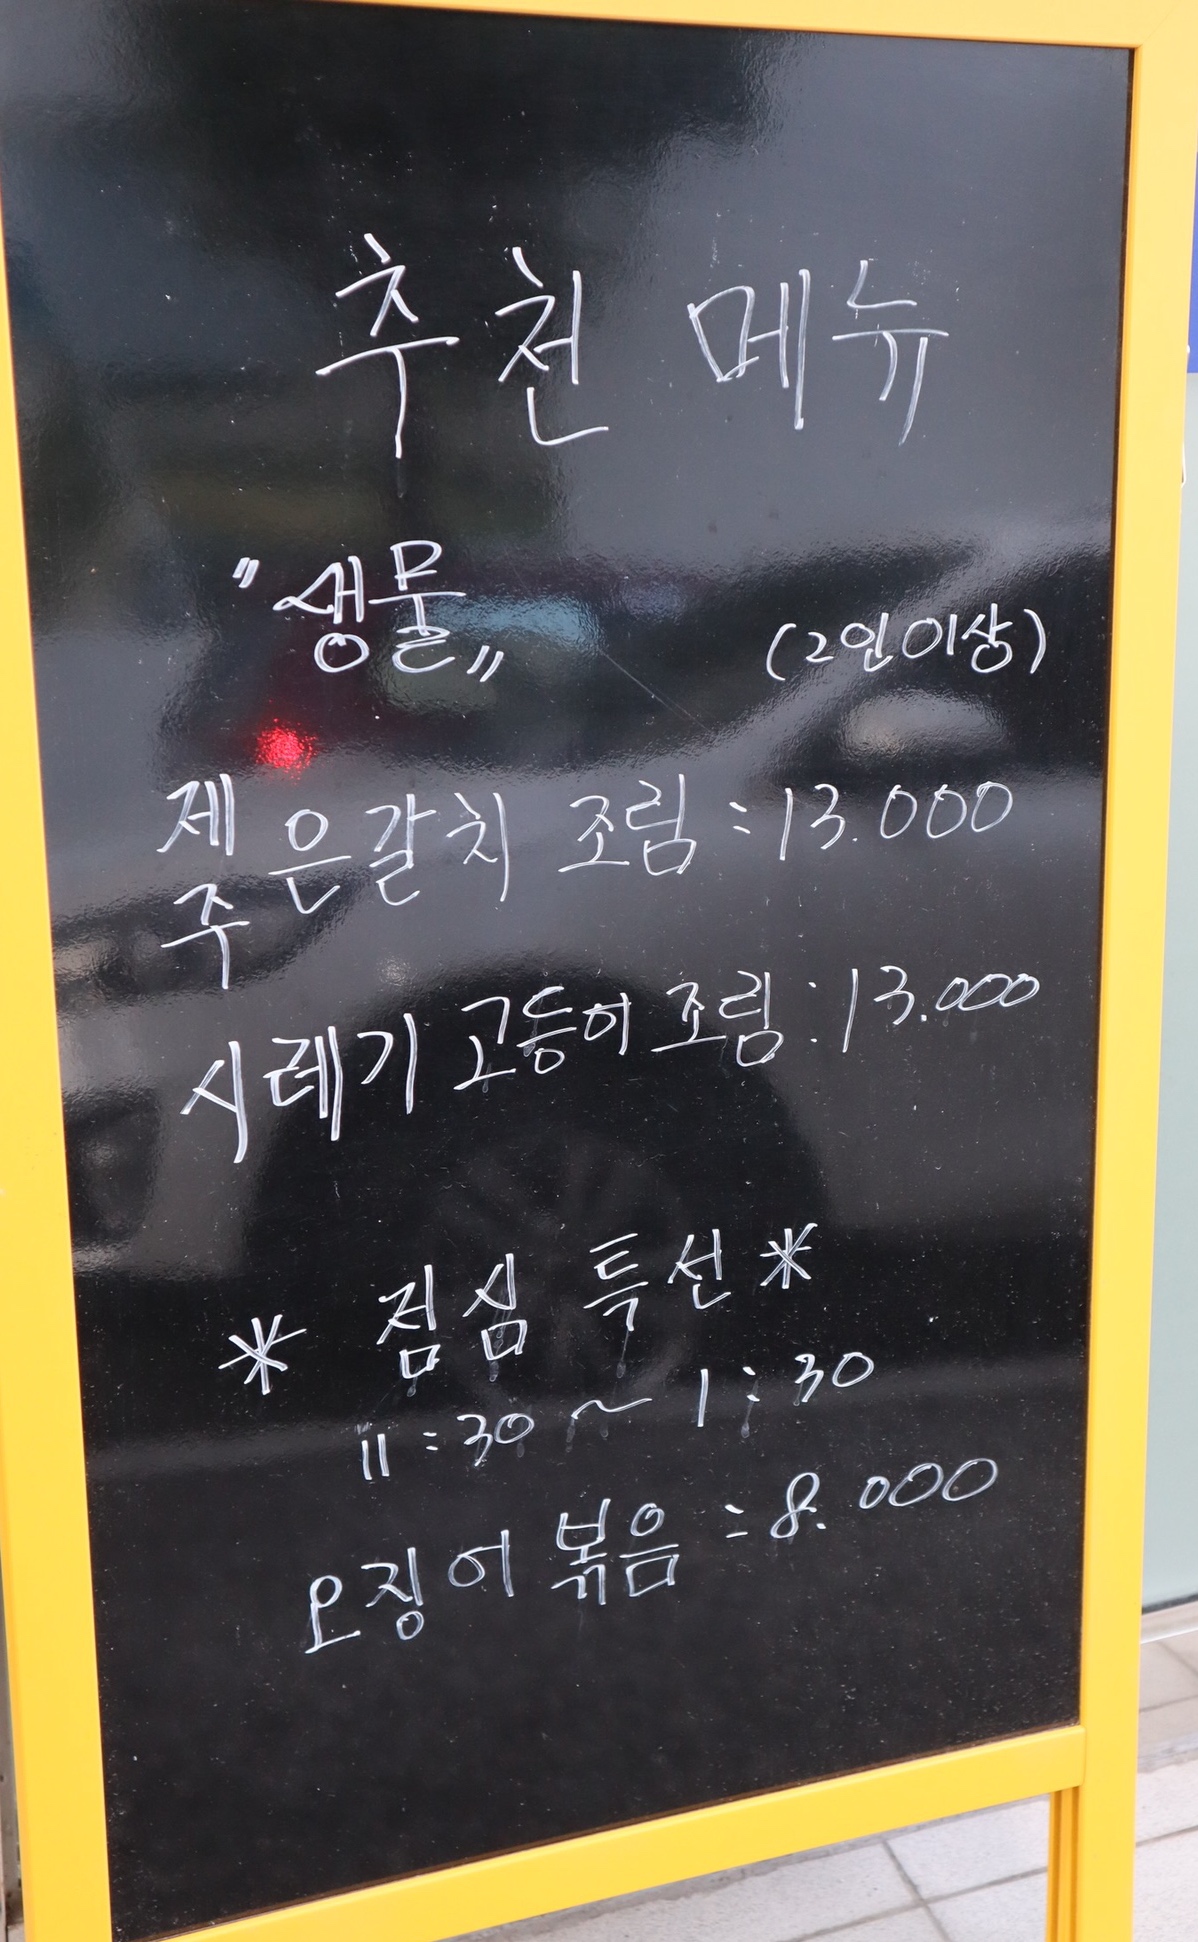 추천 메뉴
"생물" (2인이상)
제주 은갈치 조림 : 13.000
시레기 고등어 조림 : 13.000
* 점심 특선 *
11:30 ~ 1:30
오징어 볶음 : 8.000